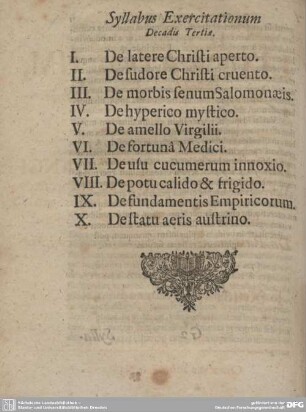 Syllabus Exercitationum
Decadis Tertiæ.
I. De latere Christi aperto.
II. De sudore Christi cruento.
III. De morbis senum Salomonæis.
IV. De hyperico mystico.
V. De amello Virgilii.
VI. De fortunâ Medici.
VII. De usu cucumerum innoxio.
VIII. De potu calido & frigido.
IX. De fundamentis Empiricorum.
X. De statu aeris austrino.
Sächsische Landesbibliothek -
Staats- und Universitätsbibliothek Dresden
gefördert von der
Deutschen Forschungsgemeinschaft
DFG